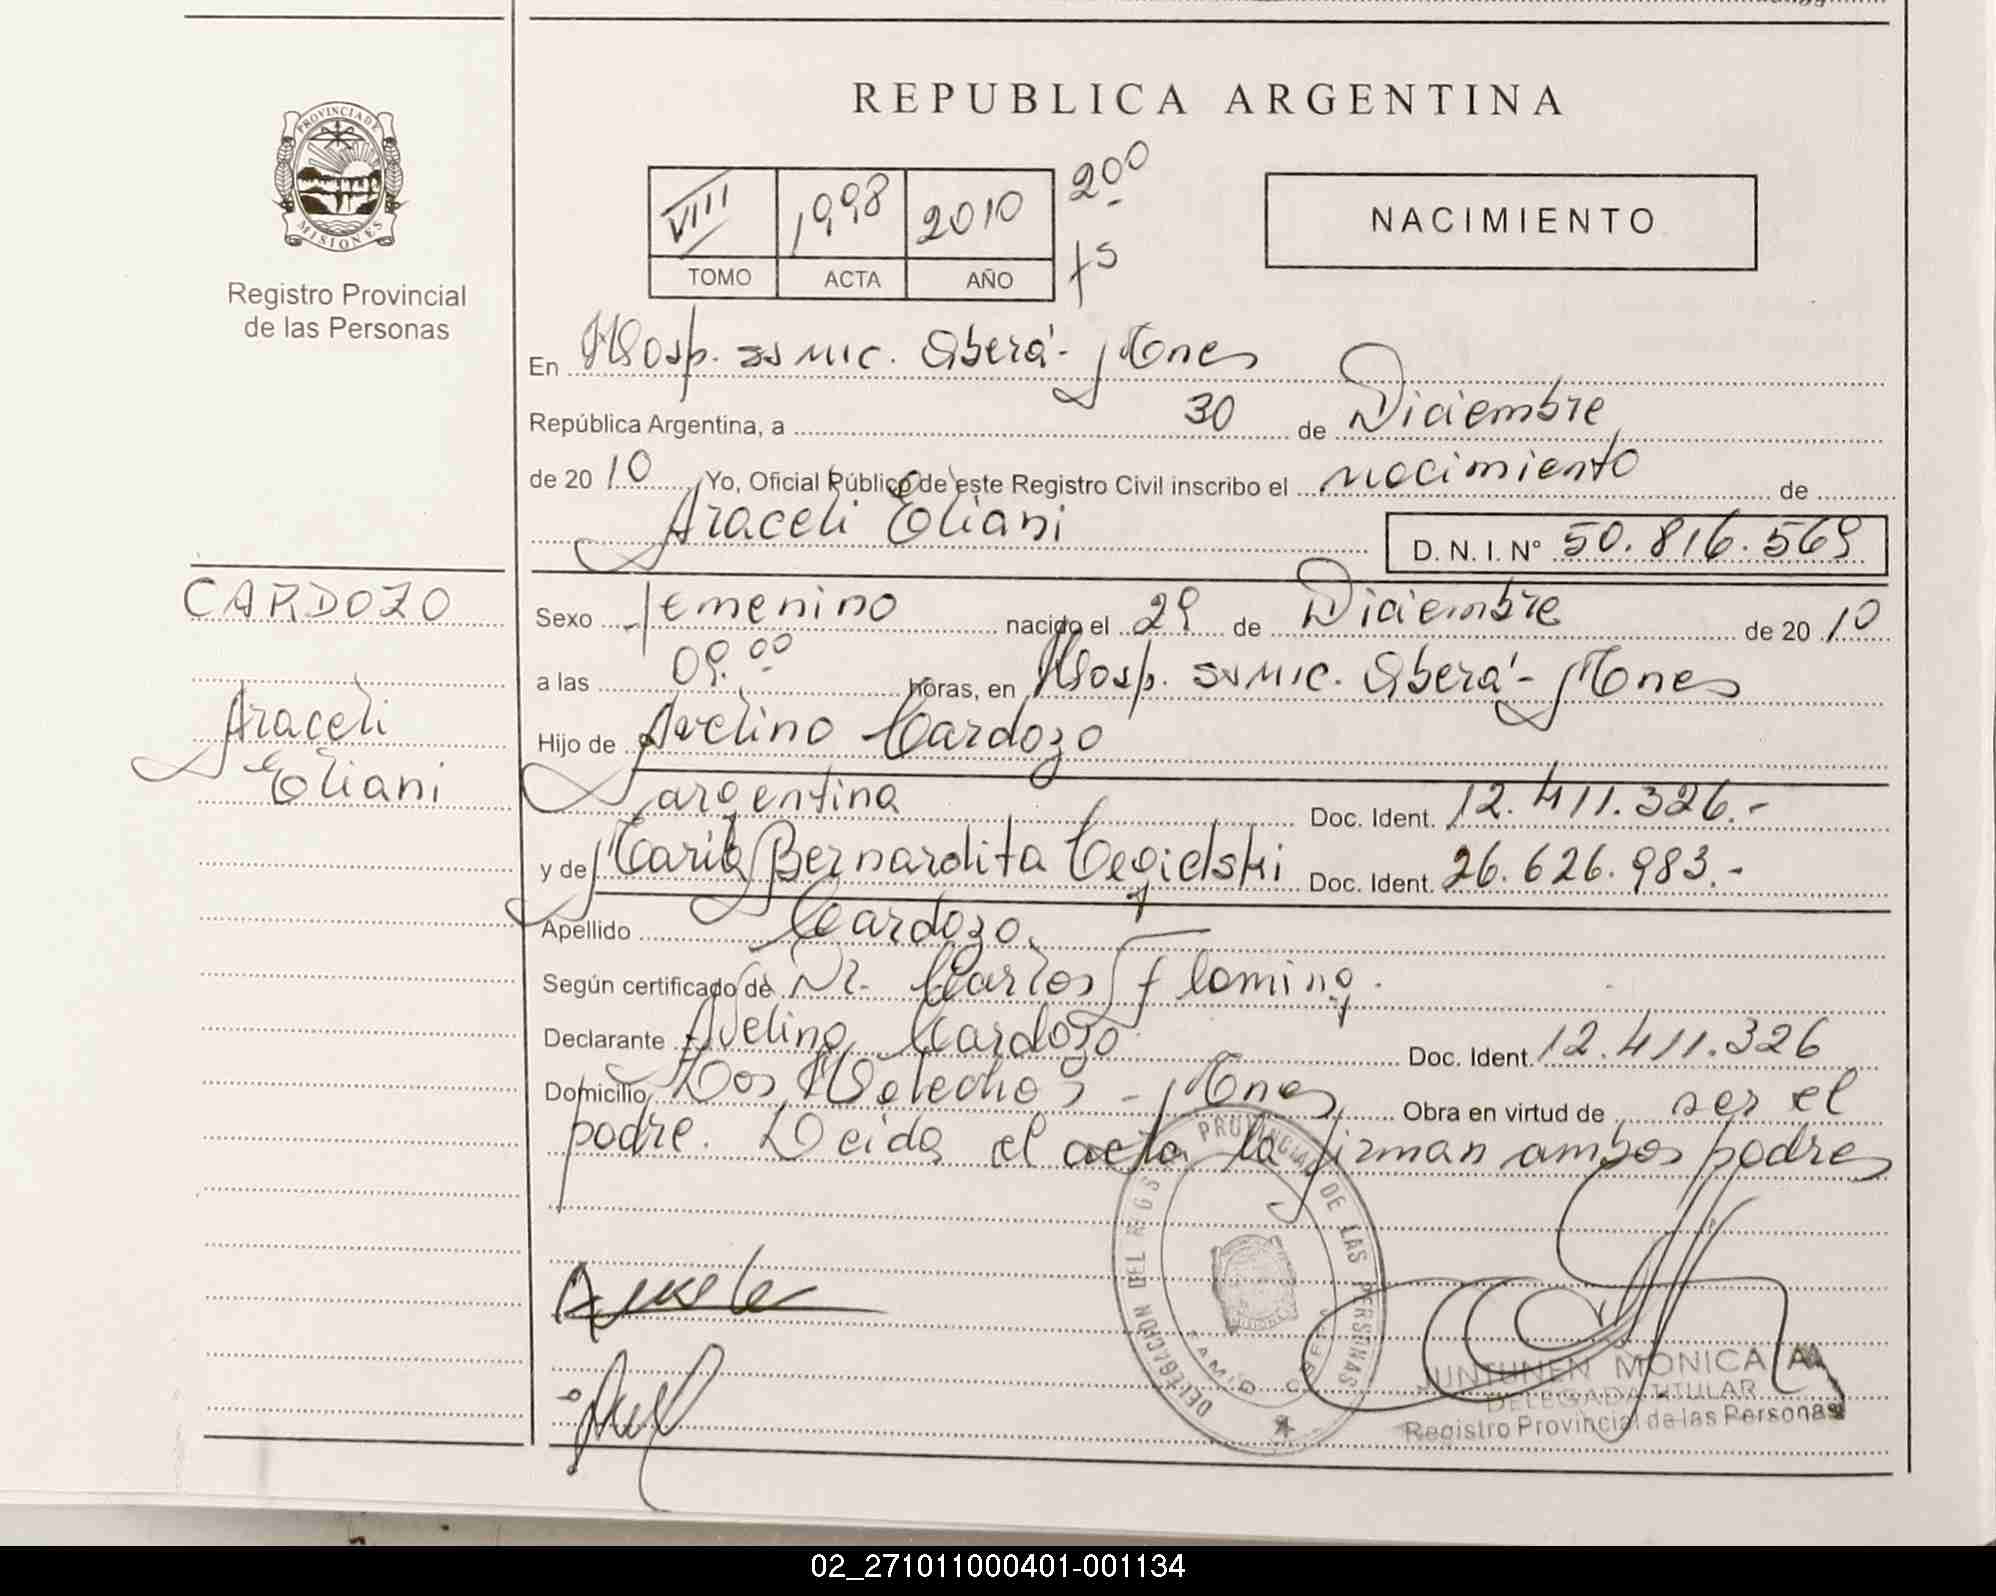 REPUBLICA ARGENTINA
PROVINCIA DE MISIONES
Registro Provincial
de las Personas
VIII 1998 2010 200
TOMO ACTA AÑO fs
NACIMIENTO
En Hosp. ss MIC. Oberá - Mnes
República Argentina, a 30 de Diciembre
de 2010 Yo, Oficial Público de este Registro Civil inscribo el nacimiento de
Araceli Eliani D. N. I. Nº 50.816.569
CARDOZO
Araceli
Eliani
Sexo femenino nacido el 29 de Diciembre de 2010
a las 09.00 horas, en Hosp. ss MIC. Oberá - Mnes
Hijo de Avelino Cardozo
argentina Doc. Ident. 12.411.326.-
y de Maria Bernardita Cegielski Doc. Ident. 26.626.983.-
Apellido Cardozo.
Según certificado de Dr. Carlos Floming.
Declarante Avelino Cardozo Doc. Ident. 12.411.326
Domicilio Los Helechos - Mnes Obra en virtud de ser el
padre. Leida el acta la firman ambos padres
DELEGACION DEL REGISTRO PROVINCIAL DE LAS PERSONAS
MISIONES
JUNTUNEN MONICA A
DELEGADA TITULAR
Registro Provincial de las Personas
02_271011000401-001134